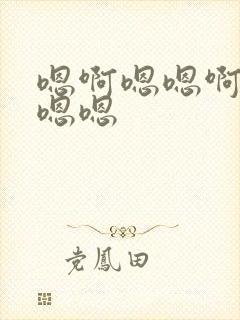 嗯啊嗯嗯啊
嗯嗯
党鳳田